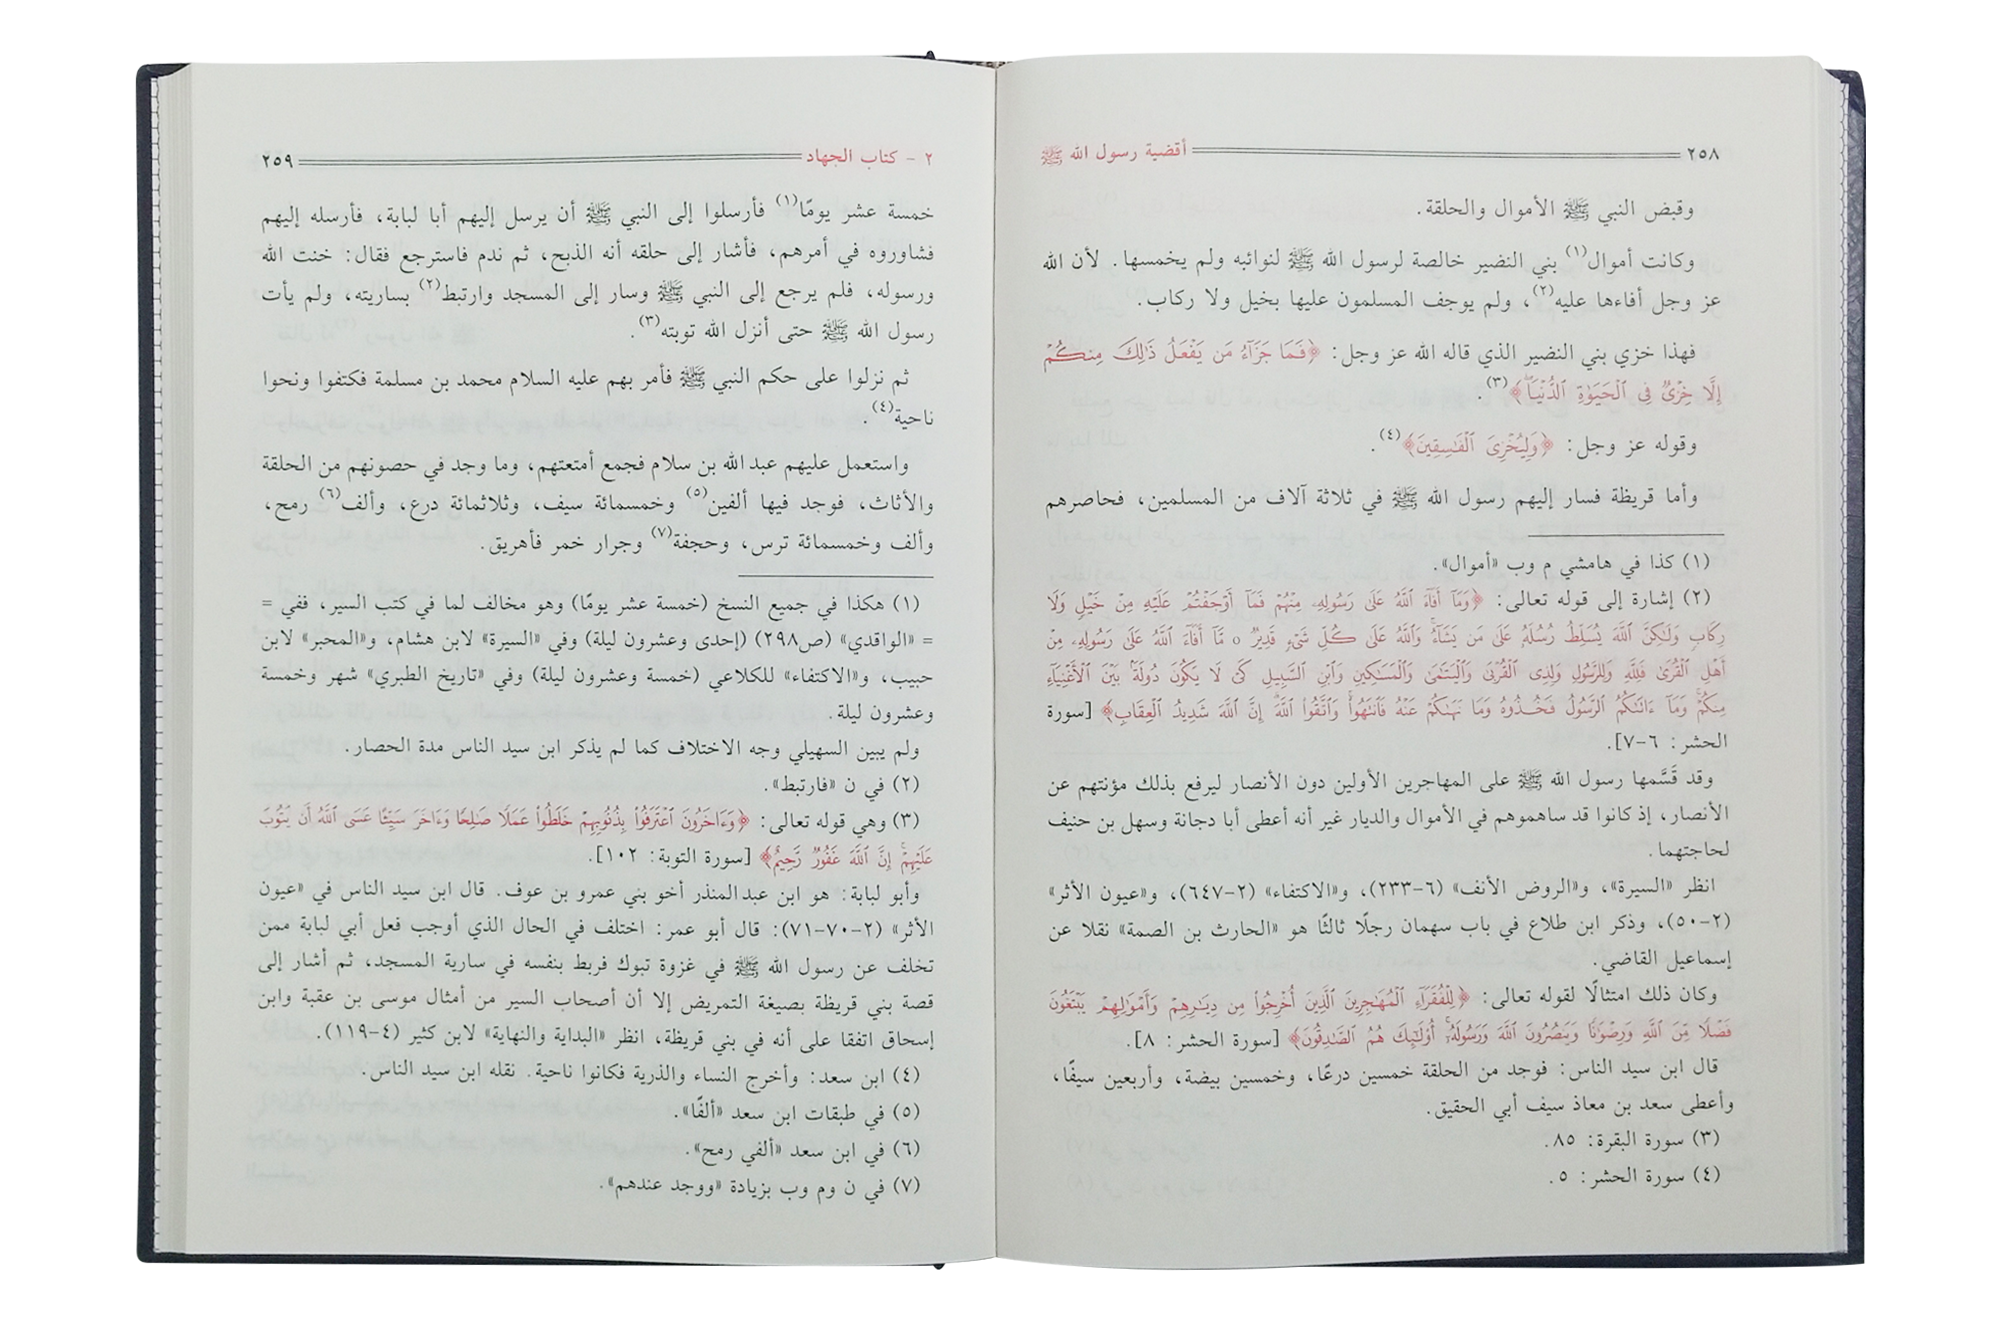 ٢٥٨ أقضية رسول الله ﷺ
وقبض النبي ﷺ الأموال والحلقة.
وكانت أموال(١) بني النضير خالصة لرسول الله ﷺ لنوائبه ولم يخمسها. لأن الله
عز وجل أفاءها عليه(٢)، ولم يوجف المسلمون عليها بخيل ولا ركاب.
فهذا خزي بني النضير الذي قاله الله عز وجل: ﴿فَمَا جَزَآءُ مَن يَفْعَلُ ذَٰلِكَ مِنكُمْ
إِلَّا خِزْىٌ فِى ٱلْحَيَوٰةِ ٱلدُّنْيَا﴾(٣).
وقوله عز وجل: ﴿وَلِيُخْزِىَ ٱلْفَـٰسِقِينَ﴾(٤).
وأما قريظة فسار إليهم رسول الله ﷺ في ثلاثة آلاف من المسلمين، فحاصرهم
(١) كذا في هامشي م وب «أموال».
(٢) إشارة إلى قوله تعالى: ﴿وَمَآ أَفَآءَ ٱللَّهُ عَلَىٰ رَسُولِهِۦ مِنْهُمْ فَمَآ أَوْجَفْتُمْ عَلَيْهِ مِنْ خَيْلٍ وَلَا
رِكَابٍ وَلَـٰكِنَّ ٱللَّهَ يُسَلِّطُ رُسُلَهُۥ عَلَىٰ مَن يَشَآءُ وَٱللَّهُ عَلَىٰ كُلِّ شَىْءٍ قَدِيرٌ ○ مَّآ أَفَآءَ ٱللَّهُ عَلَىٰ رَسُولِهِۦ مِنْ
أَهْلِ ٱلْقُرَىٰ فَلِلَّهِ وَلِلرَّسُولِ وَلِذِى ٱلْقُرْبَىٰ وَٱلْيَتَـٰمَىٰ وَٱلْمَسَـٰكِينِ وَٱبْنِ ٱلسَّبِيلِ كَىْ لَا يَكُونَ دُولَةًۢ بَيْنَ ٱلْأَغْنِيَآءِ
مِنكُمْ وَمَآ ءَاتَىٰكُمُ ٱلرَّسُولُ فَخُذُوهُ وَمَا نَهَىٰكُمْ عَنْهُ فَٱنتَهُوا۟ وَٱتَّقُوا۟ ٱللَّهَ إِنَّ ٱللَّهَ شَدِيدُ ٱلْعِقَابِ﴾ [سورة
الحشر: ٦-٧].
وقد قَسَّمها رسول الله ﷺ على المهاجرين الأولين دون الأنصار ليرفع بذلك مؤنتهم عن
الأنصار، إذ كانوا قد ساهموهم في الأموال والديار غير أنه أعطى أبا دجانة وسهل بن حنيف
لحاجتهما.
انظر «السيرة»، و«الروض الأنف» (٦-٢٣٣)، و«الاكتفاء» (٢-٦٤٧)، و«عيون الأثر»
(٢-٥٠)، وذكر ابن طلاع في باب سهمان رجلًا ثالثًا هو «الحارث بن الصمة» نقلا عن
إسماعيل القاضي.
وكان ذلك امتثالًا لقوله تعالى: ﴿لِلْفُقَرَآءِ ٱلْمُهَـٰجِرِينَ ٱلَّذِينَ أُخْرِجُوا۟ مِن دِيَـٰرِهِمْ وَأَمْوَٰلِهِمْ يَبْتَغُونَ
فَضْلًا مِّنَ ٱللَّهِ وَرِضْوَٰنًا وَيَنصُرُونَ ٱللَّهَ وَرَسُولَهُۥٓ أُو۟لَـٰٓئِكَ هُمُ ٱلصَّـٰدِقُونَ﴾ [سورة الحشر: ٨].
قال ابن سيد الناس: فوجد من الحلقة خمسين درعًا، وخمسين بيضة، وأربعين سيفًا،
وأعطى سعد بن معاذ سيف أبي الحقيق.
(٣) سورة البقرة: ٨٥.
(٤) سورة الحشر: ٥.
٢ - كتاب الجهاد ٢٥٩
خمسة عشر يومًا(١) فأرسلوا إلى النبي ﷺ أن يرسل إليهم أبا لبابة، فأرسله إليهم
فشاوروه في أمرهم، فأشار إلى حلقه أنه الذبح، ثم ندم فاسترجع فقال: خنت الله
ورسوله، فلم يرجع إلى النبي ﷺ وسار إلى المسجد وارتبط(٢) بساريته، ولم يأت
رسول الله ﷺ حتى أنزل الله توبته(٣).
ثم نزلوا على حكم النبي ﷺ فأمر بهم عليه السلام محمد بن مسلمة فكتفوا ونحوا
ناحية(٤).
واستعمل عليهم عبد الله بن سلام فجمع أمتعتهم، وما وجد في حصونهم من الحلقة
والأثاث، فوجد فيها ألفين(٥) وخمسمائة سيف، وثلاثمائة درع، وألف(٦) رمح،
وألف وخمسمائة ترس، وحجفة(٧) وجرار خمر فأهريق.
(١) هكذا في جميع النسخ (خمسة عشر يومًا) وهو مخالف لما في كتب السير، ففي =
= «الواقدي» (ص٢٩٨) (إحدى وعشرون ليلة) وفي «السيرة» لابن هشام، و«المحبر» لابن
حبيب، و«الاكتفاء» للكلاعي (خمسة وعشرون ليلة) وفي «تاريخ الطبري» شهر وخمسة
وعشرون ليلة.
ولم يبين السهيلي وجه الاختلاف كما لم يذكر ابن سيد الناس مدة الحصار.
(٢) في ن «فارتبط».
(٣) وهي قوله تعالى: ﴿وَءَاخَرُونَ ٱعْتَرَفُوا۟ بِذُنُوبِهِمْ خَلَطُوا۟ عَمَلًا صَـٰلِحًا وَءَاخَرَ سَيِّئًا عَسَى ٱللَّهُ أَن يَتُوبَ
عَلَيْهِمْ إِنَّ ٱللَّهَ غَفُورٌ رَّحِيمٌ﴾ [سورة التوبة: ١٠٢].
وأبو لبابة: هو ابن عبدالمنذر أخو بني عمرو بن عوف. قال ابن سيد الناس في «عيون
الأثر» (٢-٧٠-٧١): قال أبو عمر: اختلف في الحال الذي أوجب فعل أبي لبابة ممن
تخلف عن رسول الله ﷺ في غزوة تبوك فربط بنفسه في سارية المسجد، ثم أشار إلى
قصة بني قريظة بصيغة التمريض إلا أن أصحاب السير من أمثال موسى بن عقبة وابن
إسحاق اتفقا على أنه في بني قريظة، انظر «البداية والنهاية» لابن كثير (٤-١١٩).
(٤) ابن سعد: وأخرج النساء والذرية فكانوا ناحية. نقله ابن سيد الناس.
(٥) في طبقات ابن سعد «ألفًا».
(٦) في ابن سعد «ألفي رمح».
(٧) في ن وم وب بزيادة «ووجد عندهم».